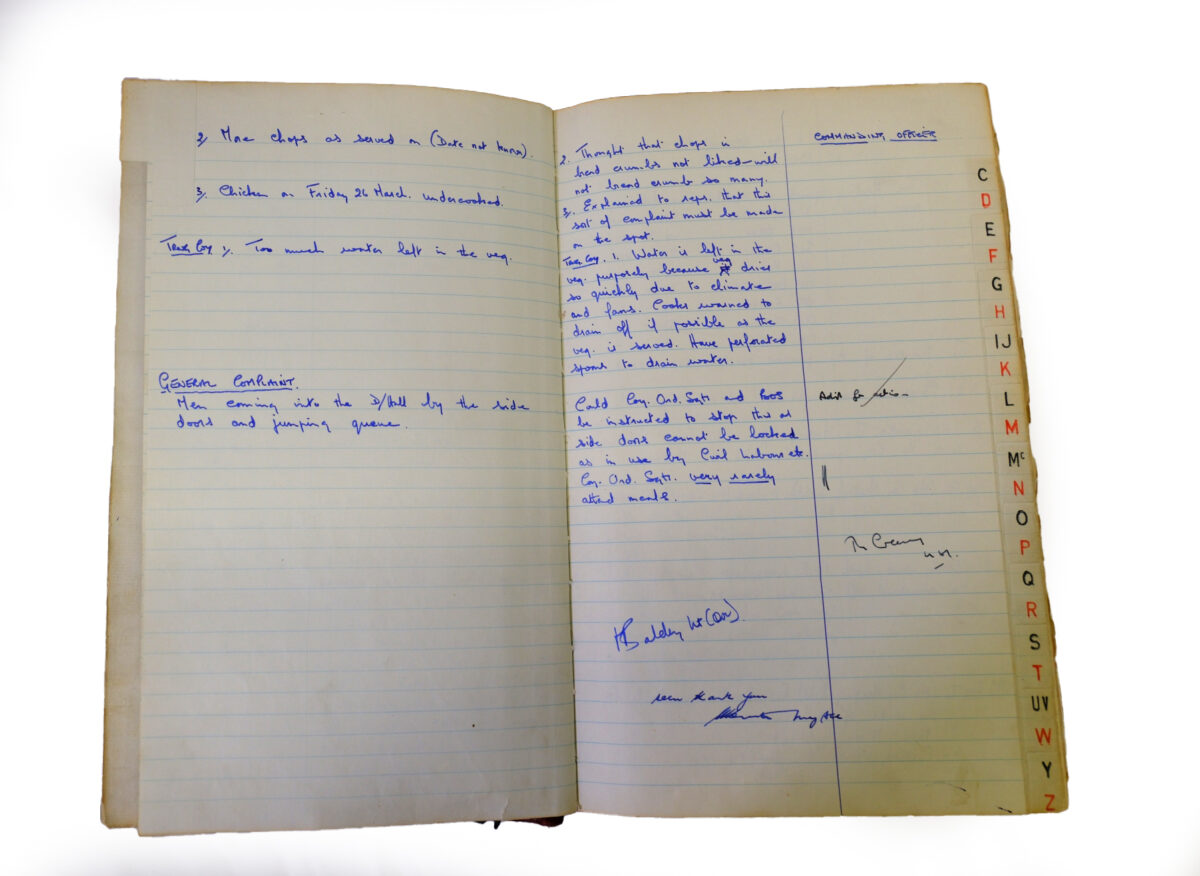 2/ More chops as served on (Date not known).
3/ Chicken on Friday 26 March. undercooked.
1/. Too much water left in the veg.
GENERAL COMPLAINT.
Men coming into the D/Hall by the side
doors and jumping queue.
2. Thought that chops in
bread crumbs not liked—will
not bread crumb so many.
3. Explained to reps. that this
sort of complaint must be made
on the spot.
1. Water is left in the
veg. purposely because veg dries
so quickly due to climate
and fans. Cooks warned to
drain off if possible as the
veg. is served. Have perforated
spoons to drain water.
Could Coy. Ord. Sgts and
be instructed to stop this as
side doors cannot be locked
as in use by Civil Labour etc.
Coy. Ord. Sgts. very rarely
attend meals.
seen thank you
COMMANDING OFFICER
C
D
E
F
G
H
IJ
K
L
M
Mc
N
O
P
Q
R
S
T
UV
W
Y
Z